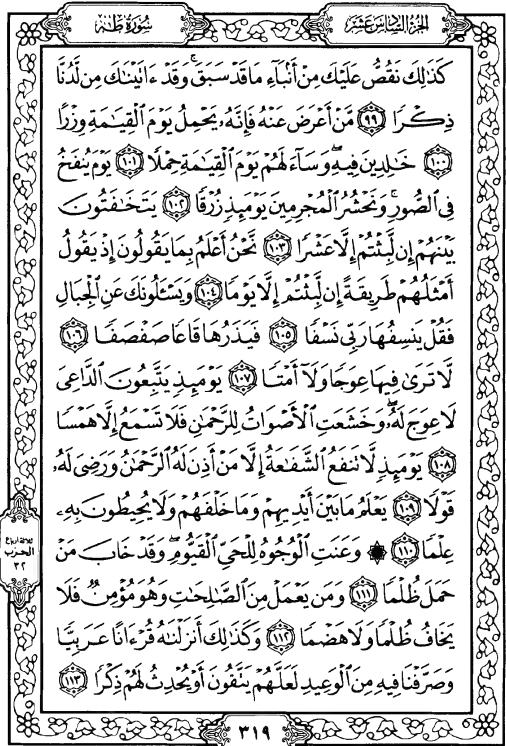 سُورَةُ طه
الجُزْءُ السَّادِسَ عَشَرَ
كَذَٰلِكَ نَقُصُّ عَلَيْكَ مِنْ أَنۢبَآءِ مَا قَدْ سَبَقَ ۚ وَقَدْ ءَاتَيْنَٰكَ مِن لَّدُنَّا
ذِكْرًا ﴿٩٩﴾ مَّنْ أَعْرَضَ عَنْهُ فَإِنَّهُۥ يَحْمِلُ يَوْمَ ٱلْقِيَٰمَةِ وِزْرًا
﴿١٠٠﴾ خَٰلِدِينَ فِيهِ ۖ وَسَآءَ لَهُمْ يَوْمَ ٱلْقِيَٰمَةِ حِمْلًا ﴿١٠١﴾ يَوْمَ يُنفَخُ
فِى ٱلصُّورِ ۚ وَنَحْشُرُ ٱلْمُجْرِمِينَ يَوْمَئِذٍ زُرْقًا ﴿١٠٢﴾ يَتَخَٰفَتُونَ
بَيْنَهُمْ إِن لَّبِثْتُمْ إِلَّا عَشْرًا ﴿١٠٣﴾ نَّحْنُ أَعْلَمُ بِمَا يَقُولُونَ إِذْ يَقُولُ
أَمْثَلُهُمْ طَرِيقَةً إِن لَّبِثْتُمْ إِلَّا يَوْمًا ﴿١٠٤﴾ وَيَسْـَٔلُونَكَ عَنِ ٱلْجِبَالِ
فَقُلْ يَنسِفُهَا رَبِّى نَسْفًا ﴿١٠٥﴾ فَيَذَرُهَا قَاعًا صَفْصَفًا ﴿١٠٦﴾
لَّا تَرَىٰ فِيهَا عِوَجًا وَلَآ أَمْتًا ﴿١٠٧﴾ يَوْمَئِذٍ يَتَّبِعُونَ ٱلدَّاعِىَ
لَا عِوَجَ لَهُۥ ۖ وَخَشَعَتِ ٱلْأَصْوَاتُ لِلرَّحْمَٰنِ فَلَا تَسْمَعُ إِلَّا هَمْسًا
﴿١٠٨﴾ يَوْمَئِذٍ لَّا تَنفَعُ ٱلشَّفَٰعَةُ إِلَّا مَنْ أَذِنَ لَهُ ٱلرَّحْمَٰنُ وَرَضِىَ لَهُۥ
قَوْلًا ﴿١٠٩﴾ يَعْلَمُ مَا بَيْنَ أَيْدِيهِمْ وَمَا خَلْفَهُمْ وَلَا يُحِيطُونَ بِهِۦ
عِلْمًا ﴿١١٠﴾ ۞ وَعَنَتِ ٱلْوُجُوهُ لِلْحَىِّ ٱلْقَيُّومِ ۖ وَقَدْ خَابَ مَنْ
حَمَلَ ظُلْمًا ﴿١١١﴾ وَمَن يَعْمَلْ مِنَ ٱلصَّٰلِحَٰتِ وَهُوَ مُؤْمِنٌ فَلَا
يَخَافُ ظُلْمًا وَلَا هَضْمًا ﴿١١٢﴾ وَكَذَٰلِكَ أَنزَلْنَٰهُ قُرْءَانًا عَرَبِيًّا
وَصَرَّفْنَا فِيهِ مِنَ ٱلْوَعِيدِ لَعَلَّهُمْ يَتَّقُونَ أَوْ يُحْدِثُ لَهُمْ ذِكْرًا ﴿١١٣﴾
ثلاثة ارباع
الحزب
٣٢
٣١٩